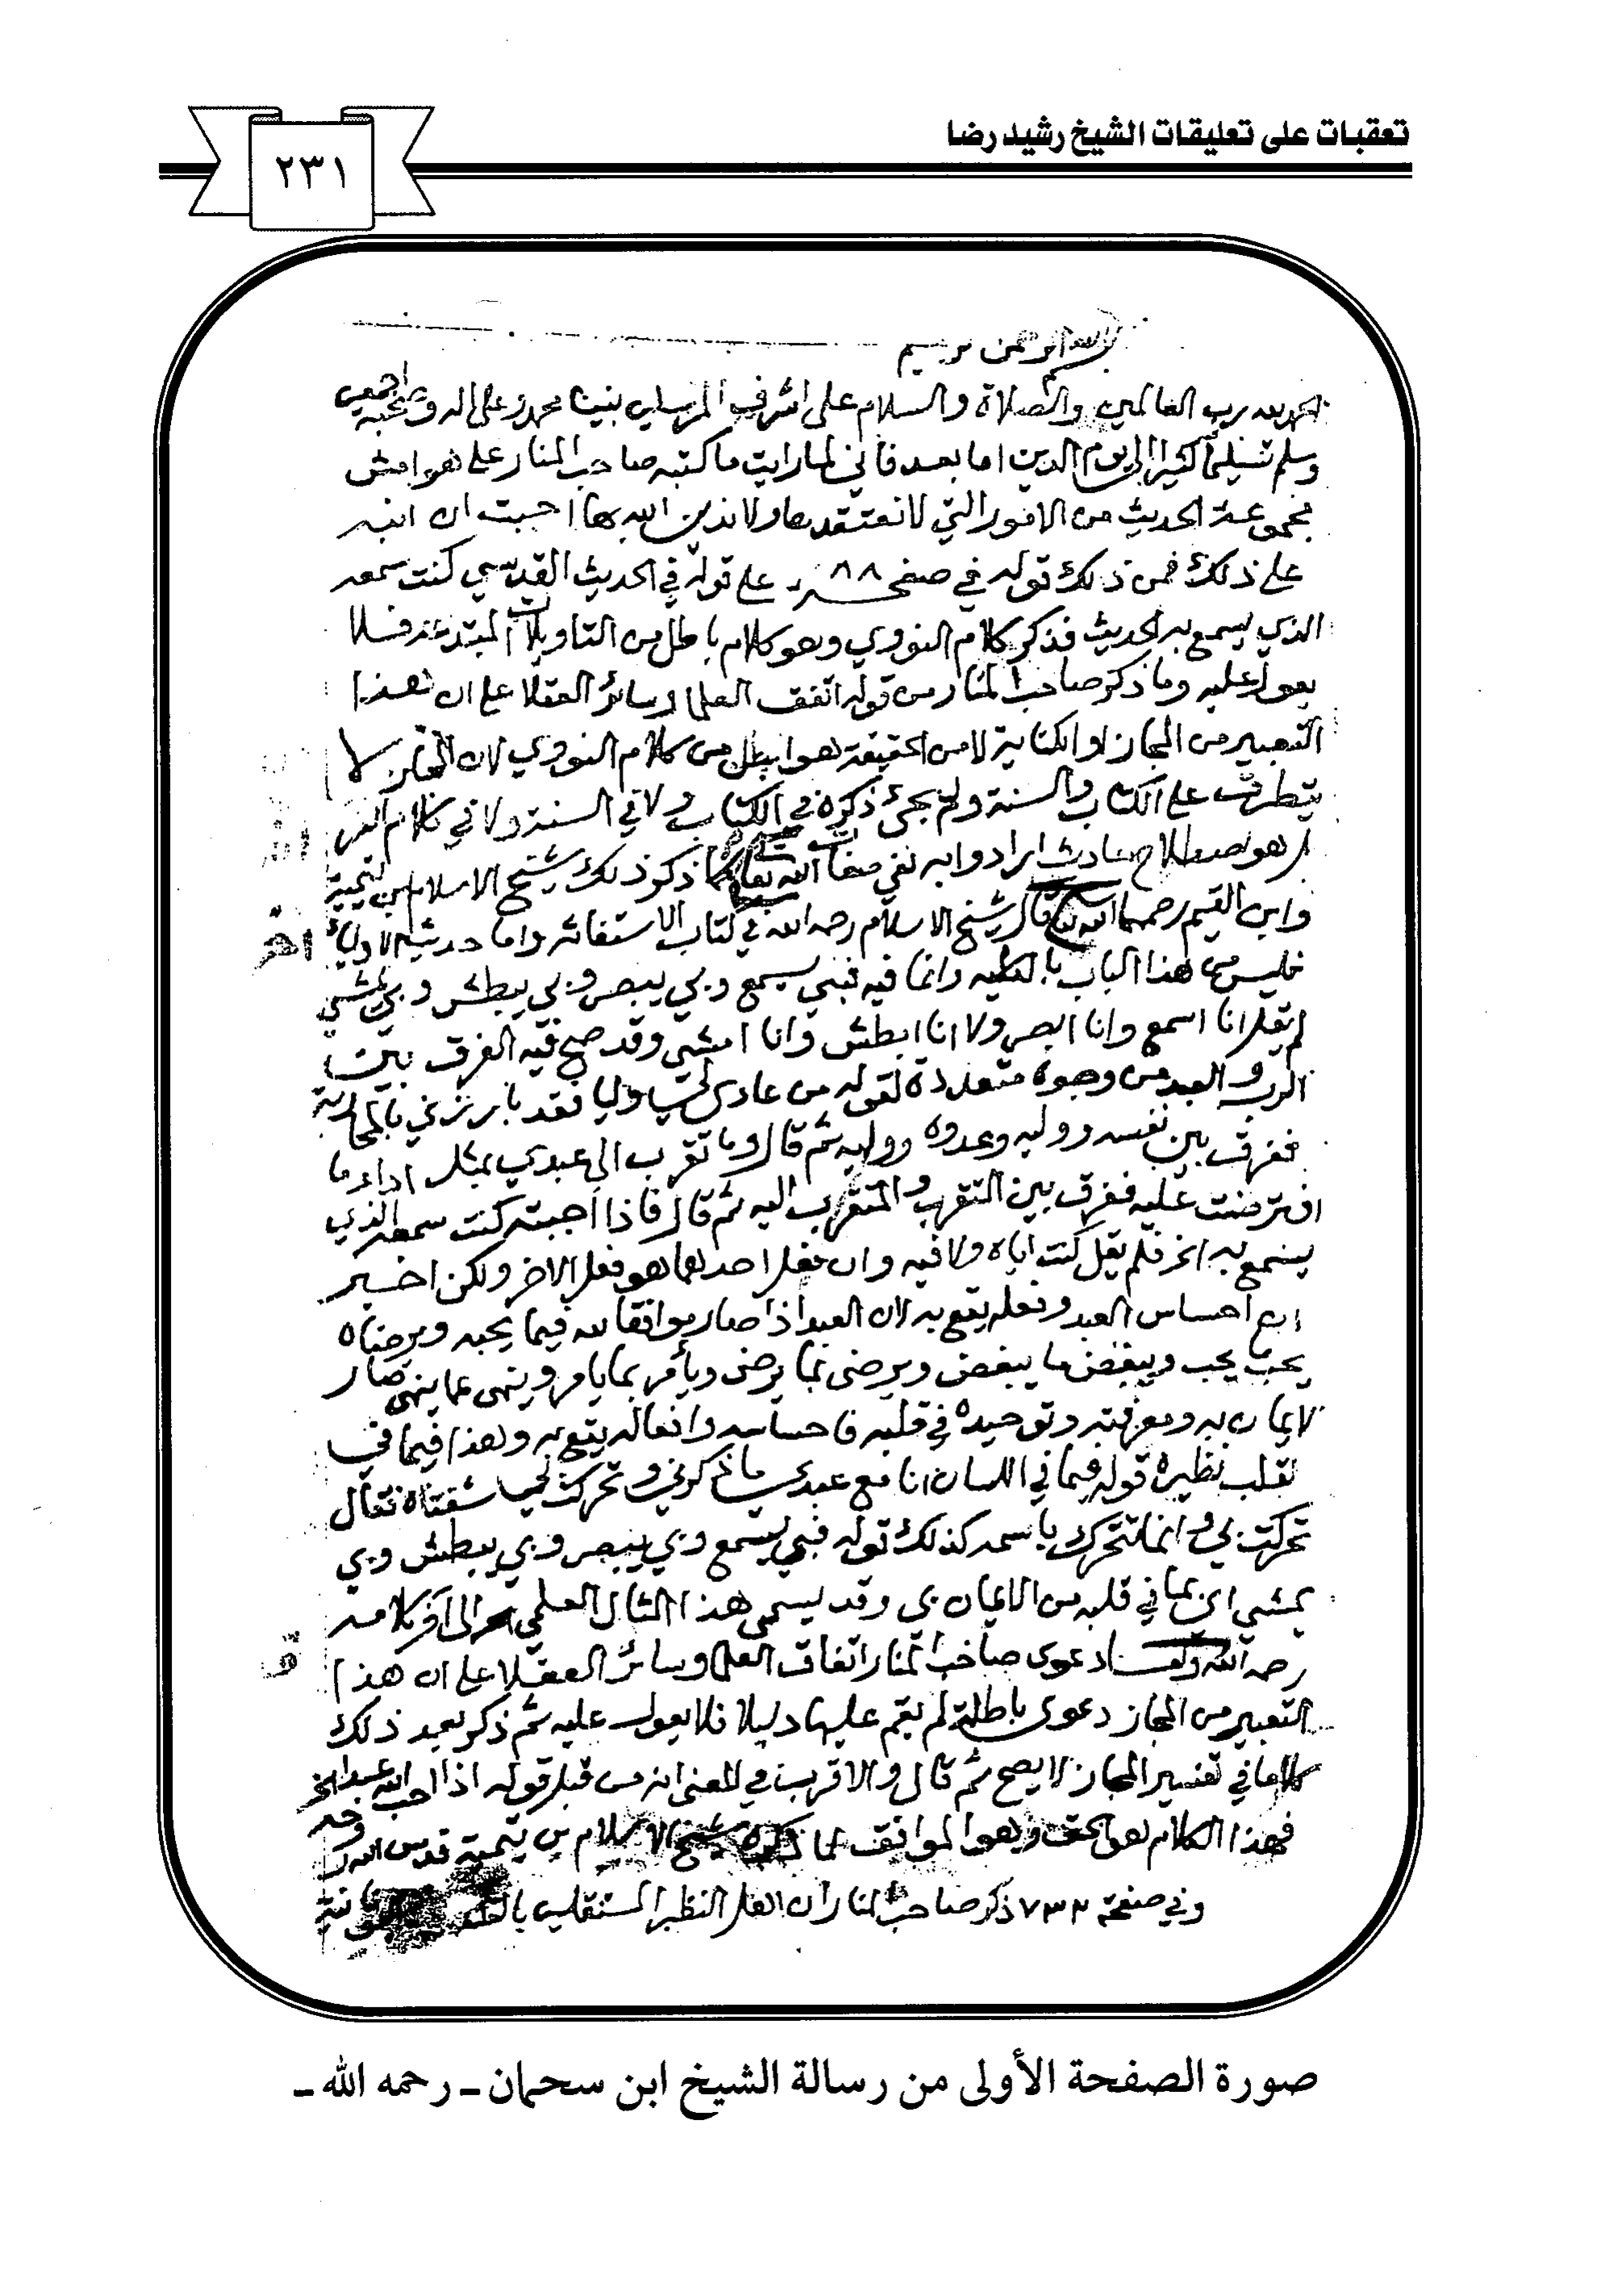 تعقبات على تعليقات الشيخ رشيد رضا
٢٣١
الحمد لله رب العالمين والصلاة والسلام على اشرف المرسلين نبينا محمد وعلى اله وصحبه اجمعين
وسلم تسليما كثيرا الى يوم الدين اما بعد فاني لما رايت ما كتبه صاحب المنار على هوامش
مجموعة الحديث من الامور التي لا نعتقدها ولا ندين الله بها احببت ان انبه
على ذلك فمن ذلك قوله في صفحه ٨٨ على قوله في الحديث القدسي كنت سمعه
الذي يسمع به الحديث فذكر كلام النووي وهو كلام باطل من التاويلات المبتدعه فلا
يعول عليه وما ذكر صاحب المنار من قوله اتفق العلما وسائر العقلا على ان هذا
التعبير من المجاز او الكناية لا من الحقيقة هو ابطل من كلام النووي لان المجاز لا
يتطرق على الكتاب والسنة ولم يجئ ذكره في الكتاب ولا في السنة ولا في كلام
هو اصطلاح حادث ارادوا به نفي صفات الله كما ذكر ذلك شيخ الاسلام بن تيمية
وابن القيم رحمهما الله قال شيخ الاسلام رحمه الله في كتاب الاستغاثه واما حديث الاولياء
فليس من هذا الباب بالكليه وانما فيه فبي يسمع وبي يبصر وبي يبطش وبي يمشي
لم يقل انا اسمع وانا ابصر ولا انا ابطش وانا امشي وقد صح فيه الفرق بين
الرب والعبد من وجوه متعددة لقوله من عادى لي وليا فقد بارزني بالمحاربة
ففرق بين نفسه ووليه وعدوه ووليه ثم قال وما تقرب الي عبدي بمثل اداء ما
افترضت عليه ففرق بين المتقرب والمتقرب اليه ثم قال فاذا احببته كنت سمعه الذي
يسمع به الخ فلم يقل كنت اياه ولا فيه وان فعل احدهما هو فعل الاخر ولكن اخبر
ان احساس العبد وفعله يقع به لان العبد اذا صار موافقا لله فيما يحبه ويرضاه
يحب ما يحب ويبغض ما يبغض ويرضى بما يرضى ويأمر بما يامر وينهى عما ينهى صار
الايمان به ومعرفته وتوحيده في قلبه فاحساسه وافعاله يقع به وهذا فيما في
القلب نظيره قوله فيما في اللسان انا مع عبدي ما ذكرني وتحركت بي شفتاه فقال
تحركت بي وانما تتحرك باسمه كذلك قوله فبي يسمع وبي يبصر وبي يبطش وبي
يمشي اي بما في قلبه من الايمان بي وقد يسمى هذا المثال العلمي الى آخر كلامه
رحمه الله دعوى صاحب المنار اتفاق العلما وسائر العقلا على ان هذا
التعبير من المجاز دعوى باطلة لم يقم عليها دليلا فلا يعول عليه ثم ذكر بعد ذلك
كلاما في تفسير المجاز لا يصح ثم قال والاقرب في المعنى انه من قبل قوله اذا احب الله عبدا الخ
فهذا الكلام هو الحق وهو الموافق لما ذكره شيخ الاسلام بن تيمية قدس الله روحه
وفي صفحة ٧٣٣ ذكر صاحب المنار ان اهل النظر المستقلين
صورة الصفحة الأولى من رسالة الشيخ ابن سحمان - رحمه الله -